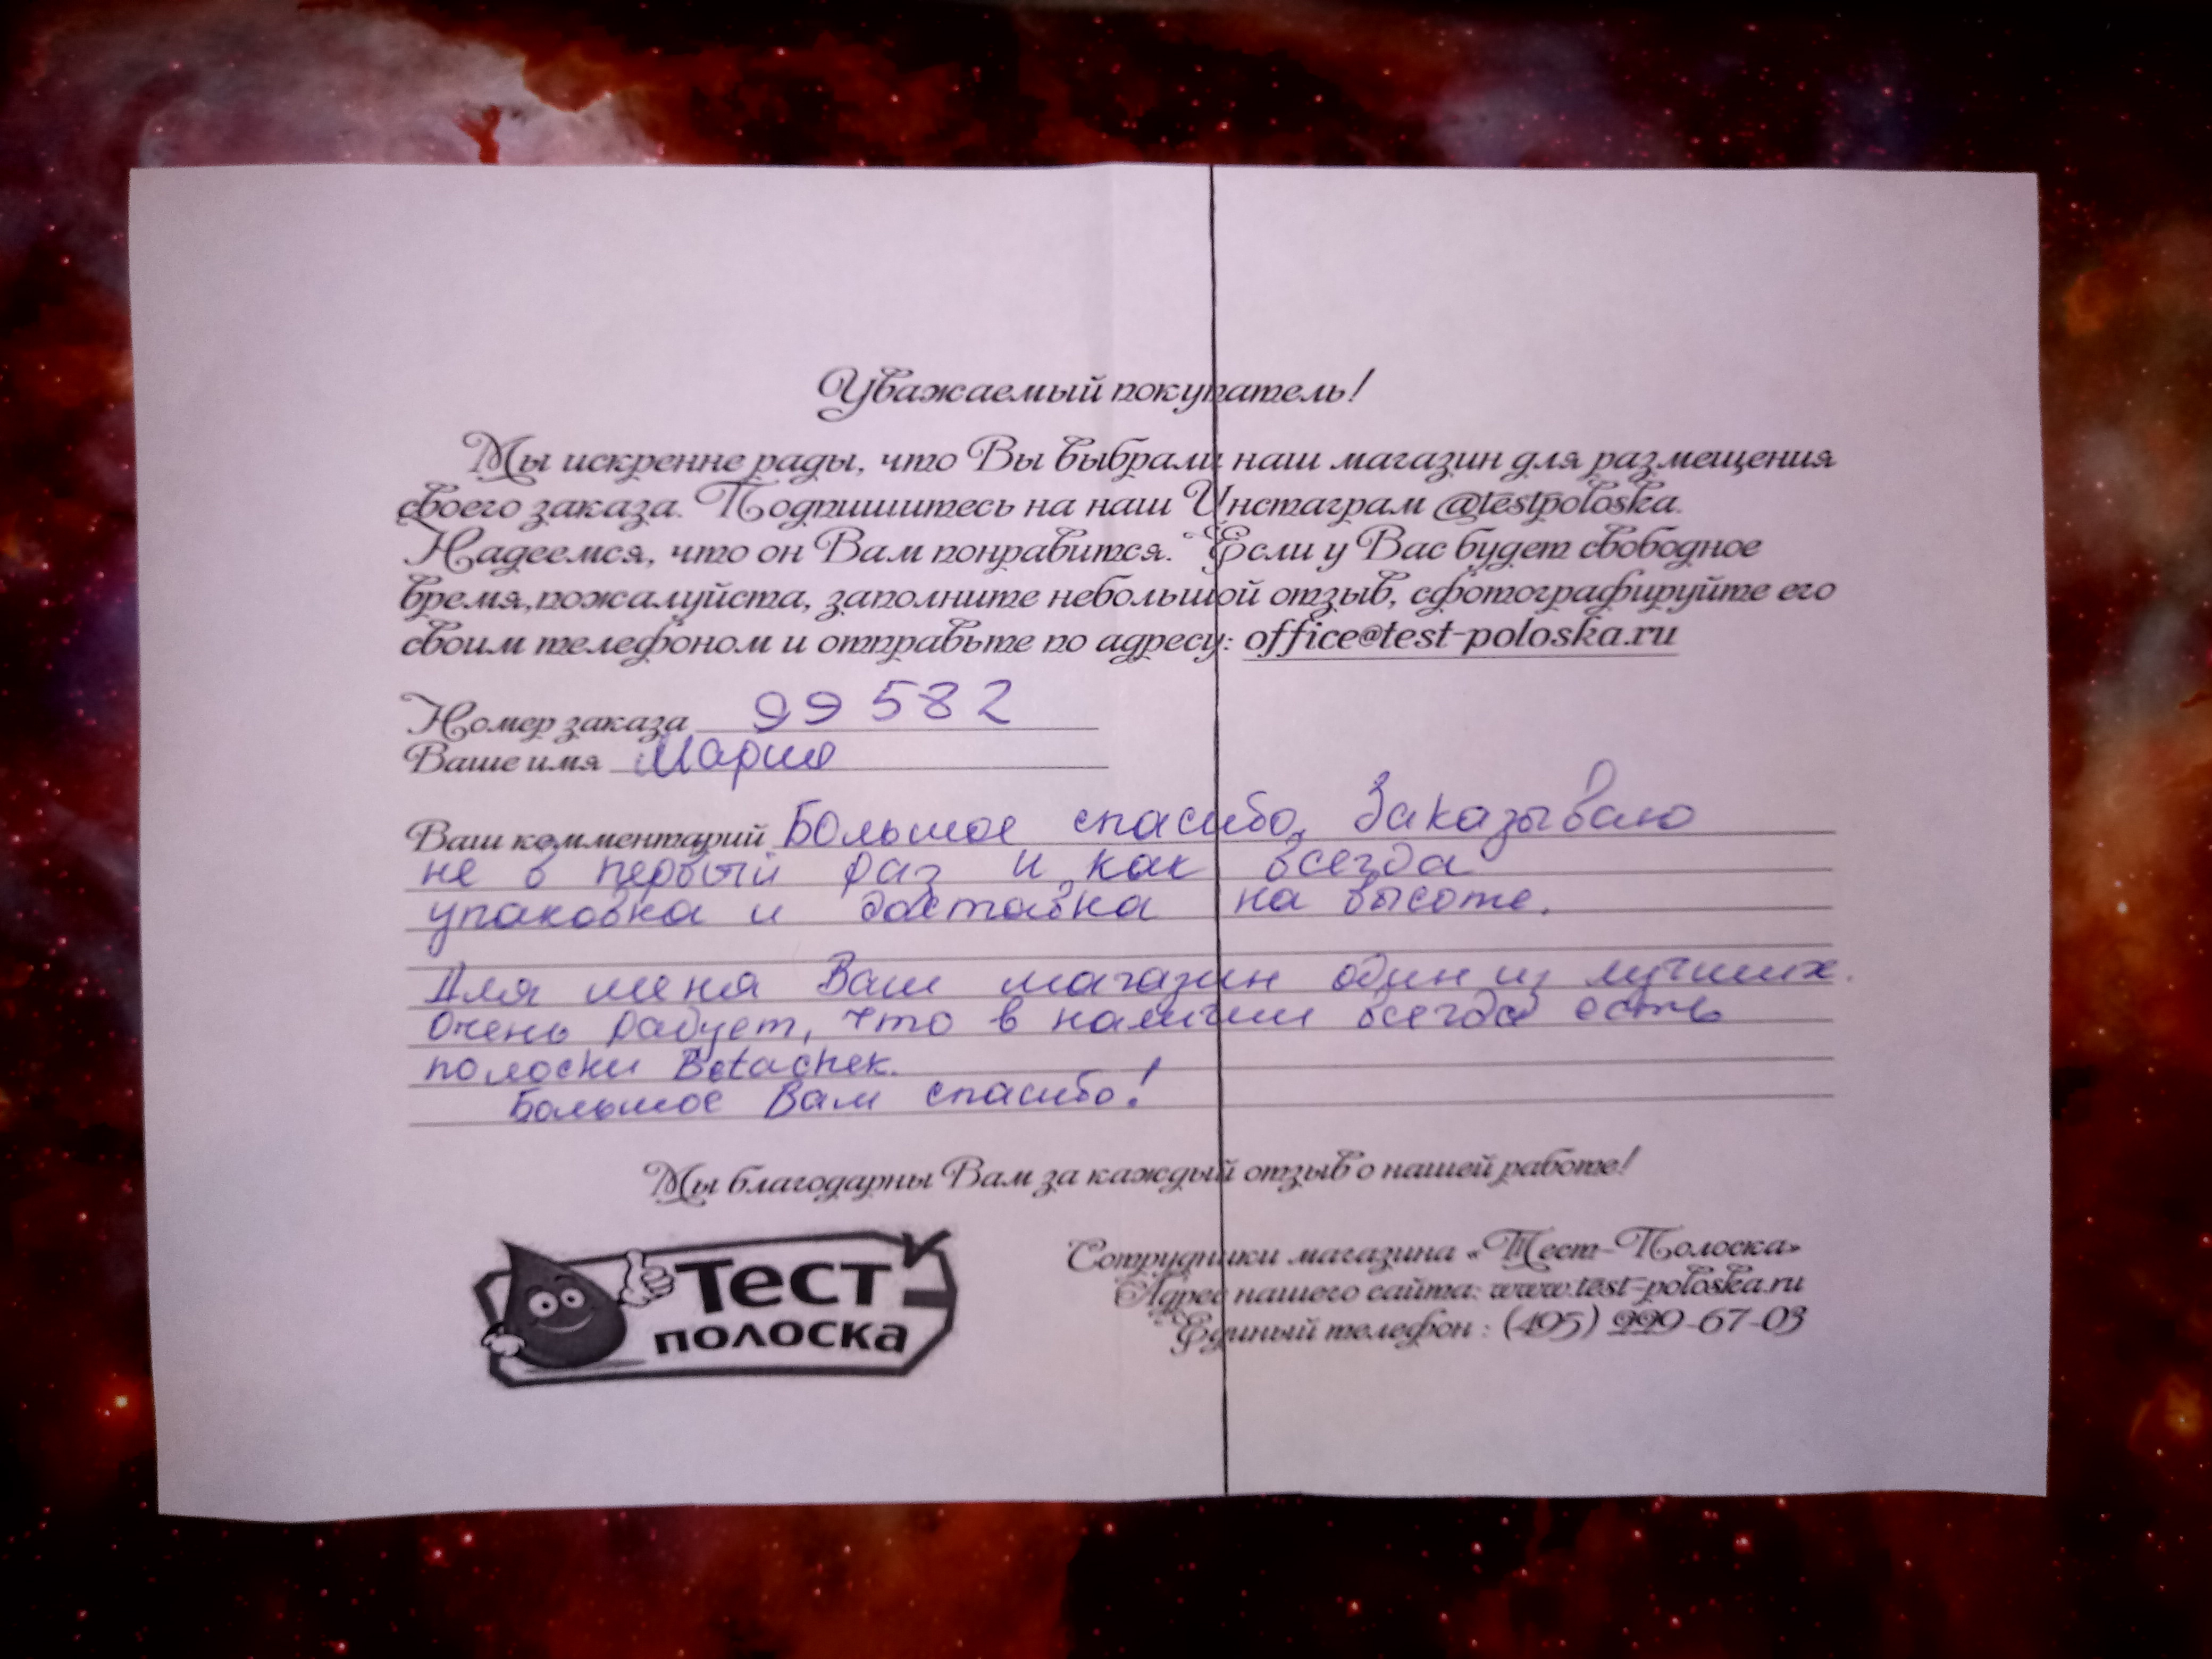 Уважаемый покупатель!
Мы искренне рады, что Вы выбрали наш магазин для размещения
своего заказа. Подпишитесь на наш Инстаграм @testpoloska.
Надеемся, что он Вам понравится. Если у Вас будет свободное
время,пожалуйста, заполните небольшой отзыв, сфотографируйте его
своим телефоном и отправьте по адресу: office@test-poloska.ru
Номер заказа 99582
Ваше имя Мария
Ваш комментарий Большое спасибо, Заказываю
не в первый раз и как всегда
упаковка и доставка на высоте.
Для меня Ваш магазин один из лучших.
Очень радует, что в наличии всегда есть
полоски Betachek.
Большое Вам спасибо!
Мы благодарны Вам за каждый отзыв о нашей работе!
Тест
полоска
Сотрудники магазина «Тест-Полоска»
Адрес нашего сайта: www.test-poloska.ru
Единый телефон : (495) 999-67-03